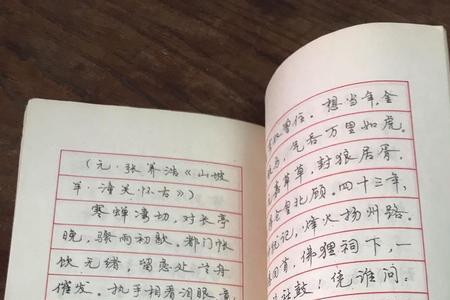 (元·张养浩《山坡
羊·潼关怀古》)
寒蝉凄切，对长亭
晚，骤雨初歇。都门帐
饮无绪，留恋处兰舟
催发。执手相看泪眼，竟
奴曾住。想当年，金
铁马，气吞万里如虎。
嘉草草，封狼居胥，
仓皇北顾。四十三年，
犹记，烽火扬州路。
回首，佛狸祠下，一
社鼓！凭谁问：